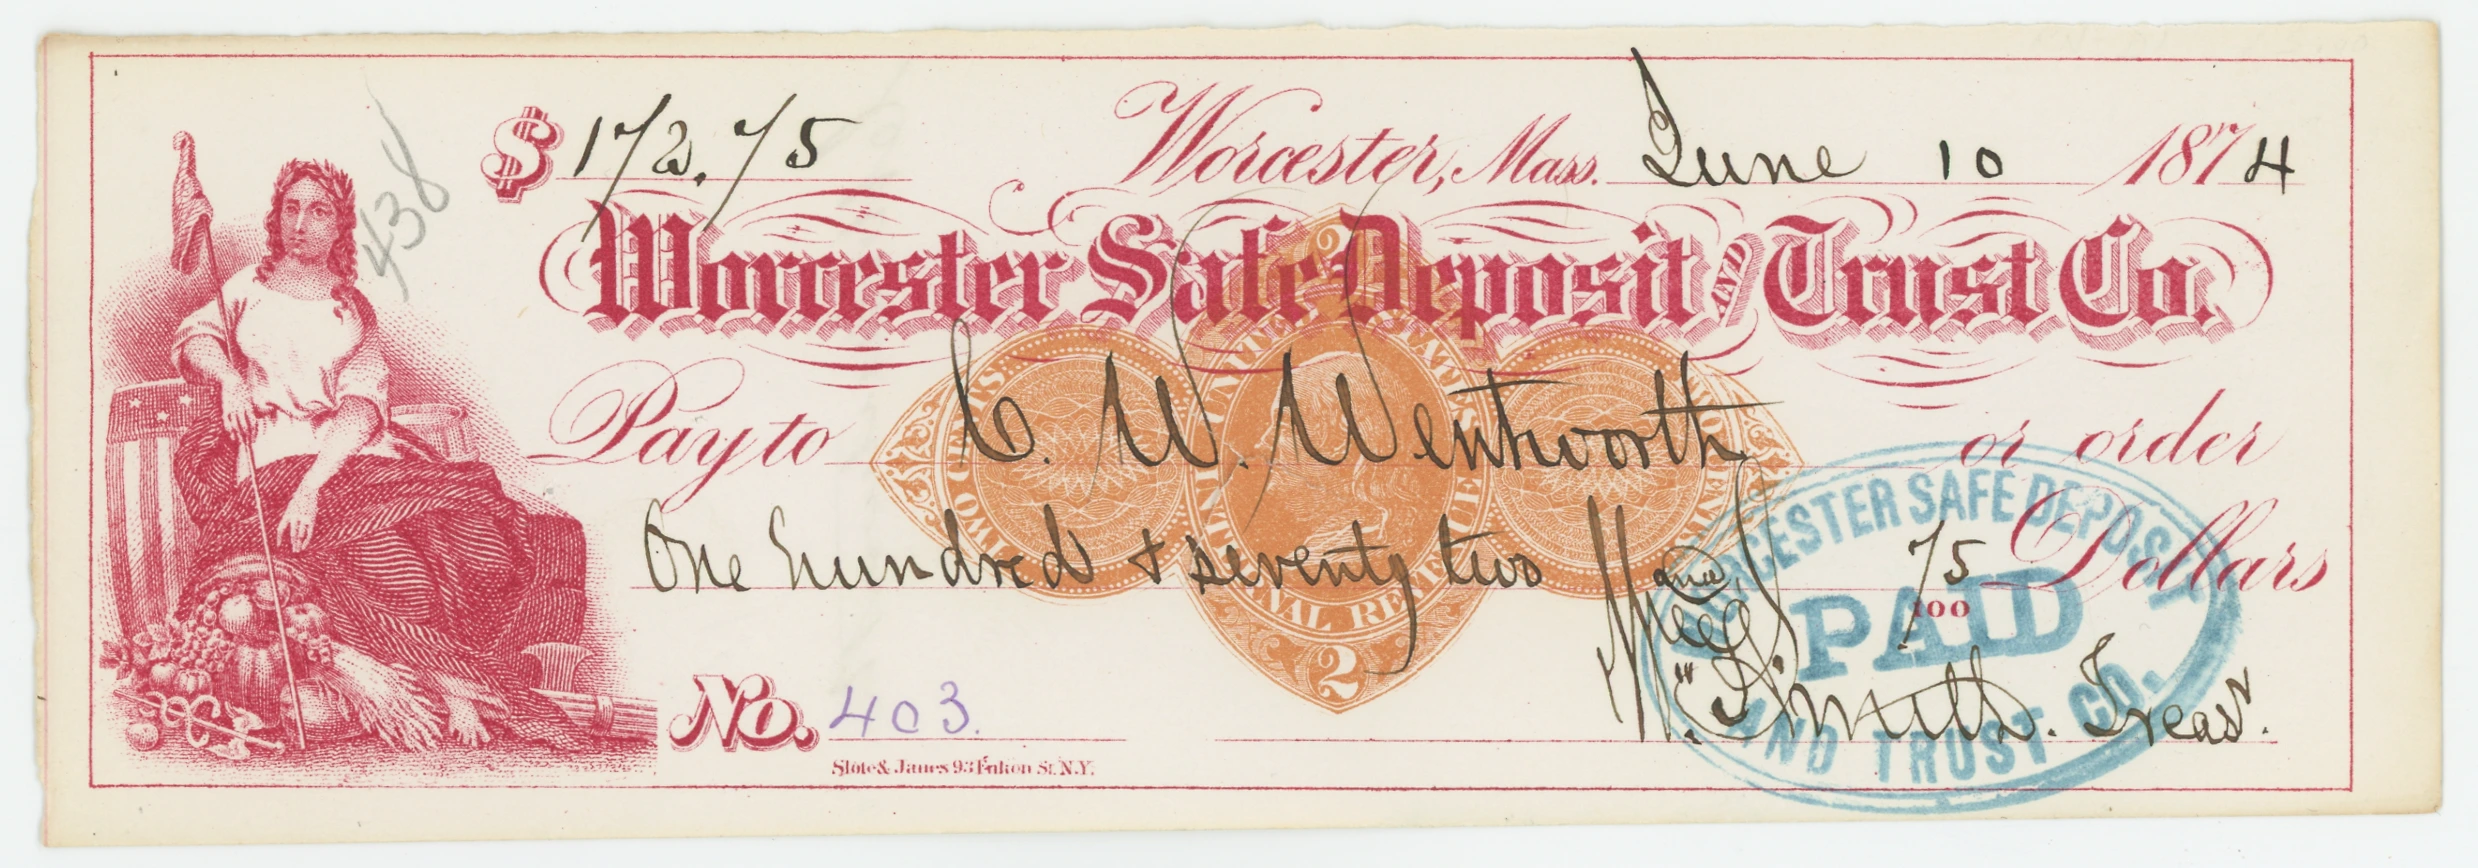 438
$ 172.75 Worcester, Mass. June 10 1874
Worcester Safe Deposit AND Trust Co.
Pay to C. W. Wentworth or order
One hundred & seventy two 75/100 Dollars
No. 403. Smith. Treasr.
Slote & Janes 93 Fulton St. N.Y.
2
UNITED STATES
INTERNAL REVENUE
TWO CENTS
TWO CENTS
2
WORCESTER SAFE DEPOSIT
PAID
AND TRUST CO.